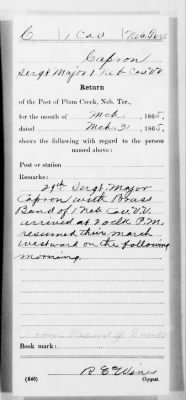 C | 1 Cav | Neb. Ter.
Capron
Sergt Major 1 Neb Cav V V
Return
of the Post of Plum Creek, Neb. Ter.,
for the month of Mch, 1865,
dated Mch 31, 1865,
shows the following with regard to the person
named above:
Post or station
Remarks:
29th Sergt. Major
Capron with Brass
Band of 1 Neb Cav V.V.
arrived at 2 oclk P.M.
resumed their march
westward on the following
morning.
Book mark:
(646)
Copyist.